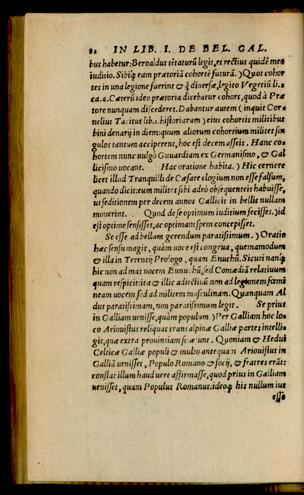 82 IN LIB. I. DE BEL. GAL.
bus habetur: Beroaldus tẽtaturũ legit, et rectius quidẽ meo
iudicio. Sibiq; eam prætoriã cohortẽ futurã. ) Quot cohor
tes in una legione fuerint & q̃ diuersæ, legito Vegetiũ li.
2. ca. 6. Cæterũ ideo prætoria dicebatur cohors, quod à Præ
tore nunquam discederet. Dabantur autem ( inquit Cor-
nelius Tacitus lib. 1. historiarum ) eius cohortis militibus
bini denarij in diem: quum aliorum cohortium milites sin
gulos tantum acciperent, hoc est decem asseis. Hanc co-
hortem nunc uulgò Guuardiam ex Germanismo, & Gal
licismo uocant. Hac oratione habita. ) Hic cernere
licet illud Tranquilli de Cæsare elogium non esse falsum,
quando dicit: eum militẽ sibi adeò obsequenteis habuisse,
ut seditionem per decem annos Gallicis in bellis nullam
mouerint. Quod de se optimum iuditium fecisset. ) id
est optime sensisset, ac optimam spem concepisset.
Se esse ad bellum gerendum paratissimum. ) Oratio
hæc sensu magis, quàm uoce est congrua, quemamodum
& illa in Terentij Prologo, quam Eunuchũ. Sicuti nanq;
hic non ad mas uocem Eunuchũ, sed Comœdiã relatiuum
quam respicit: ita & illic adiectiuũ non ad legionem fœmi
neam uocem sed ad militem masculinam. Quanquam Al
dus paratissimam, non paratissimum legit. Se prius
in Galliam uenisse, quàm populum ) Per Galliam hoc lo
co Ariouistus reliquas transalpinæ Galliæ partes intelli-
git, quæ extra prouintiam sitæ sunt. Quoniam & Hedui
Celticæ Galliæ populi & multo antequam Ariouistus in
Galliã uenisset, Populo Romano & socij, & fratres erãt:
constat illum haud uere affirmasse, quod prius in Galliam
uenisset, quam Populus Romanus: ideoq; hic nullum ius
esse